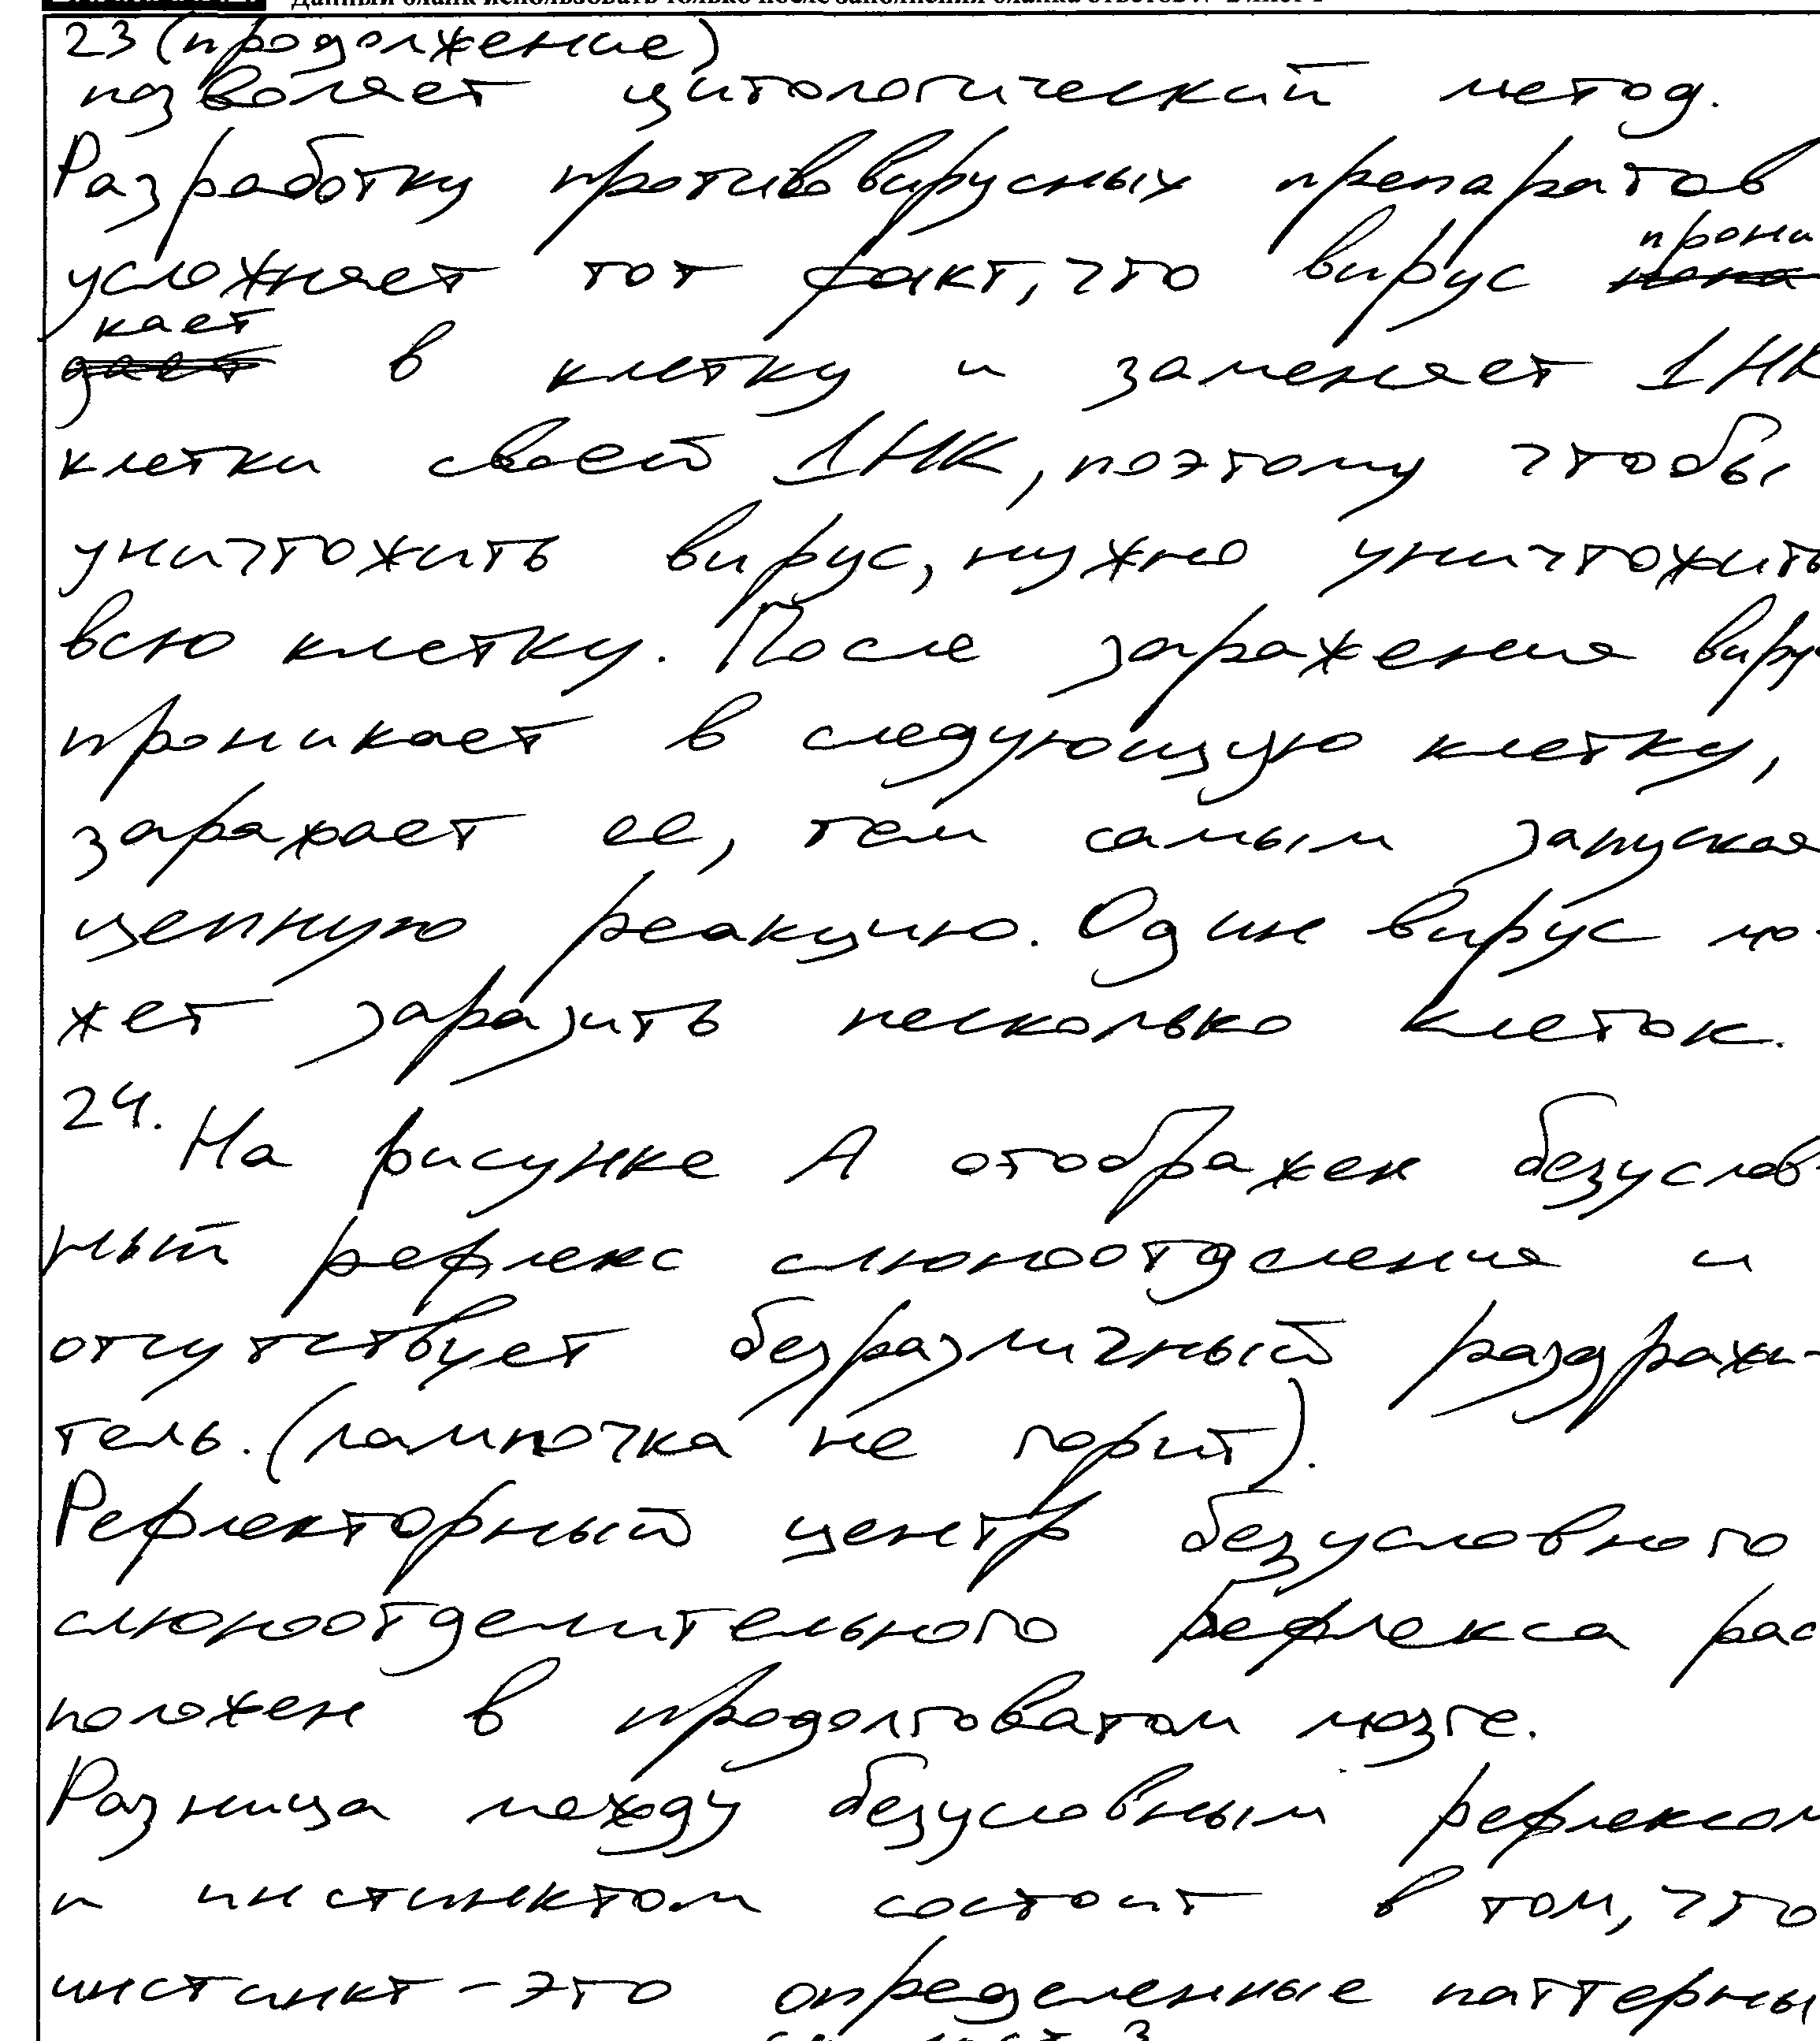 Данный бланк использовать только после заполнения бланка ответов
23 (продолжение)
позволяет цитологический метод.
Разработку противовирусных препаратов
усложняет тот факт, что вирус прони
кает в клетку и заменяет ДНК
клетки своей ДНК, поэтому чтобы
уничтожить вирус, нужно уничтожить
всю клетку. После заражения вирус
проникает в следующую клетку,
заражает ее, тем самым запуская
цепную реакцию. Один вирус мо-
жет заразить несколько клеток.
24.
На рисунке А отображен безуслов-
ный рефлекс слюноотделения и
отсутствует безразличный раздражи-
тель. (лампочка не горит).
Рефлекторный центр безусловного
слюноотделительного рефлекса рас
положен в продолговатом мозге.
Разница между безусловным рефлексом
и инстинктом состоит в том, что
инстинкт - это определенные паттерны